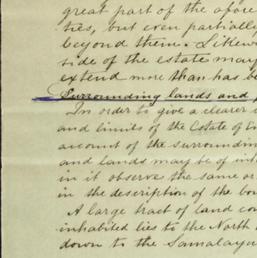 great part of the afore
ties, but even partially
beyond them. Likew
side of the estate may
extend more than has be
Surrounding lands and
In order to give a clearer
and limits of the Estate of
account of the surroundin
and lands may be of int
in it observe the same or
in the description of the bou
A large tract of land co
inhabited lies to the North
down to the Samalayu